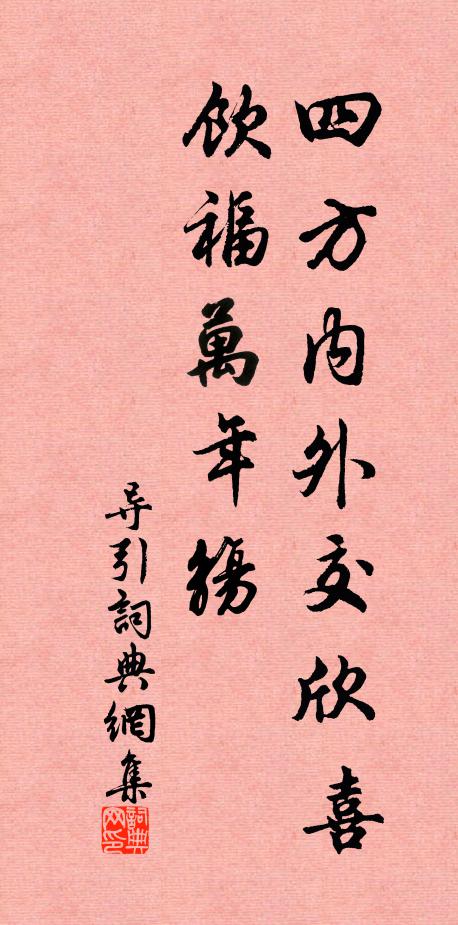 四方内外交欣喜
飲福萬年觴
导引詞典網集
詞典網印